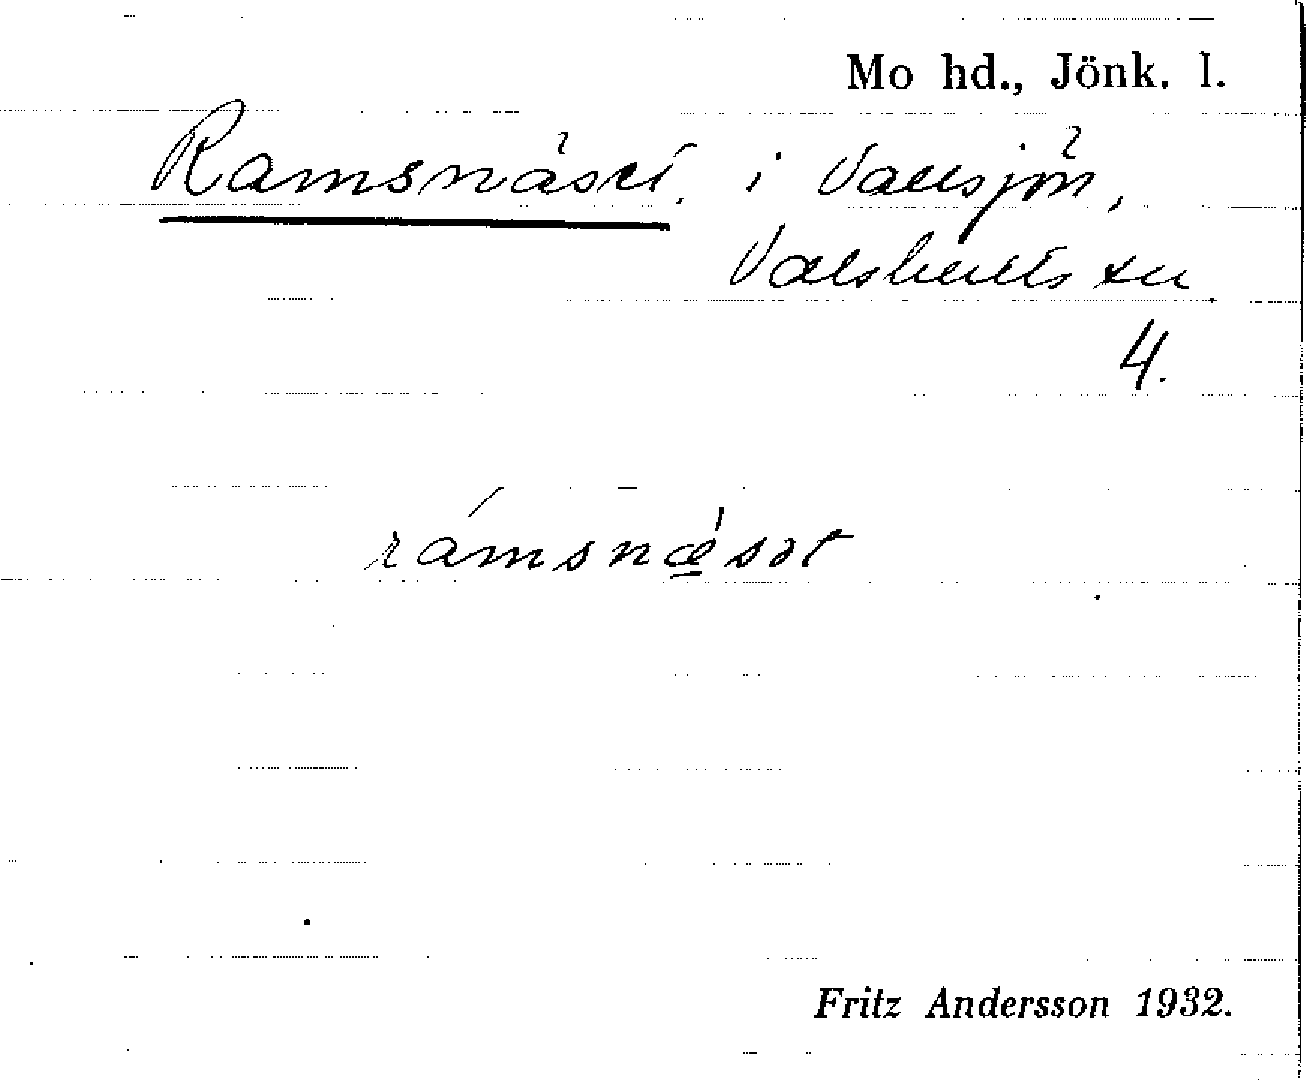 Mo hd., Jönk. l.
Ramsnäset, i Vallsjön,
Valshults sn
4.
rámsnǽ̲sət
Fritz Andersson 1932.